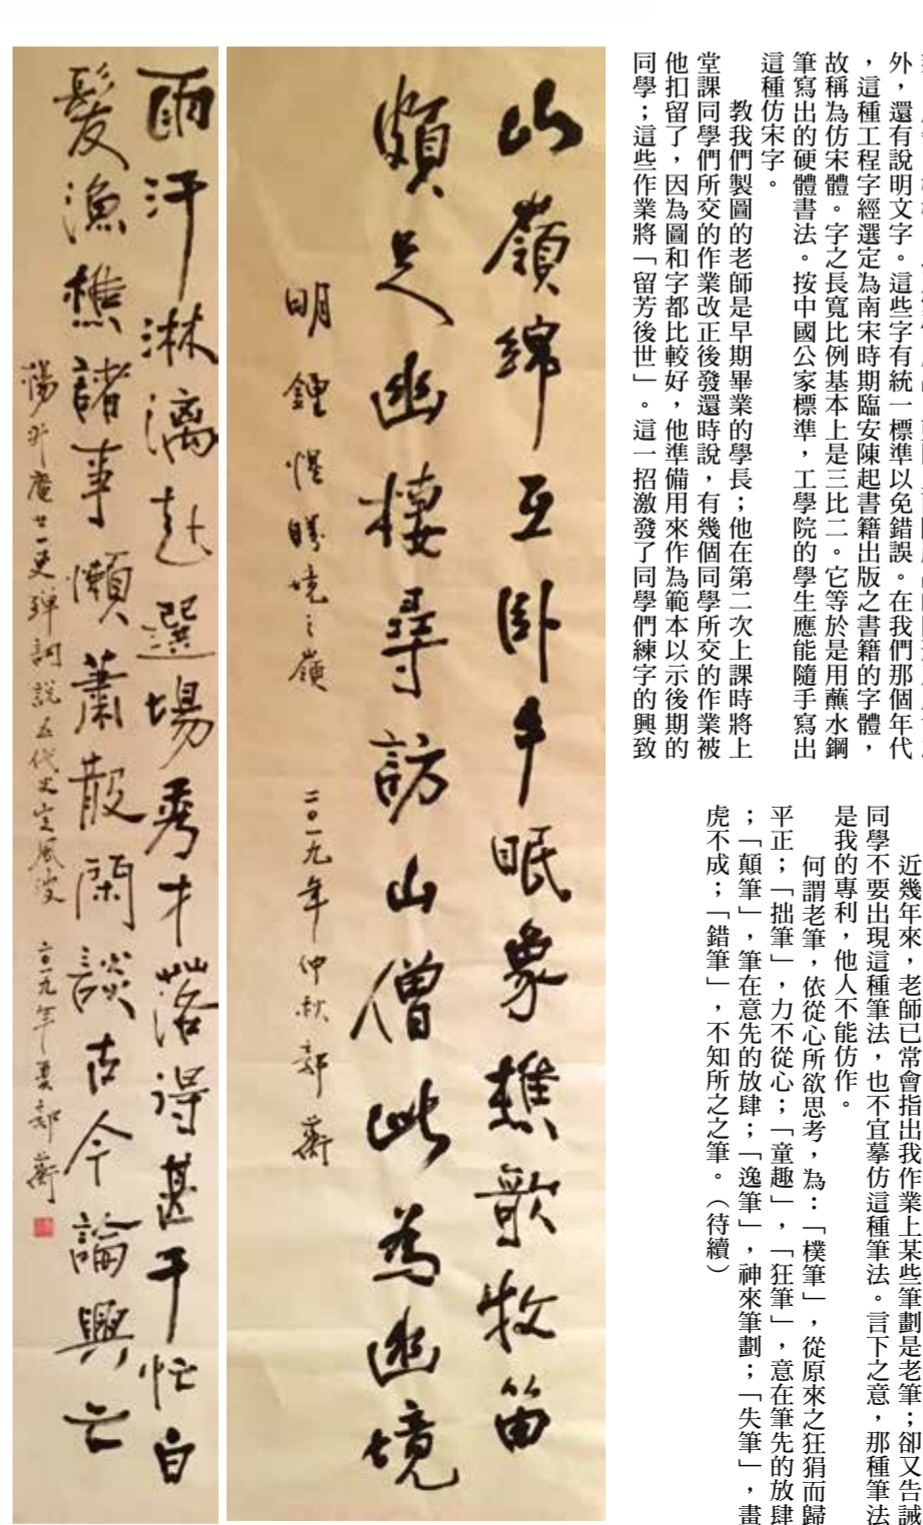 外，還有說明文字。這些字有統一標準以免錯誤。在我們那個年代
，這種工程字經選定為南宋時期臨安陳起書籍出版之書籍的字體，
故稱為仿宋體。字之長寬比例基本上是三比二。它等於是用蘸水鋼
筆寫出的硬體書法。按中國公家標準，工學院的學生應能隨手寫出
這種仿宋字。
教我們製圖的老師是早期畢業的學長；他在第二次上課時將上
堂課同學們所交的作業改正後發還時說，有幾個同學所交的作業被
他扣留了，因為圖和字都比較好，他準備用來作為範本以示後期的
同學；這些作業將「留芳後世」。這一招激發了同學們練字的興致
近幾年來，老師已常會指出我作業上某些筆劃是老筆；卻又告誡
同學不要出現這種筆法，也不宜摹仿這種筆法。言下之意，那種筆法
是我的專利，他人不能仿作。
何謂老筆，依從心所欲思考，為：「樸筆」，從原來之狂狷而歸
平正；「拙筆」，力不從心；「童趣」，「狂筆」，意在筆先的放肆
；「顛筆」，筆在意先的放肆；「逸筆」，神來筆劃；「失筆」，畫
虎不成；「錯筆」，不知所之之筆。（待續）
山嶺綿亙臥牛眠象樵歌牧笛
頗足幽棲尋訪山僧此為幽境
明鍾惺 境之嶺 二〇一九年仲秋
雨汗淋漓赴選場秀才落得甚干忙白
髮漁樵諸事懶蕭散閑談古今論興亡
楊升庵廿一史彈詞說五代史定風波 二〇一九年夏